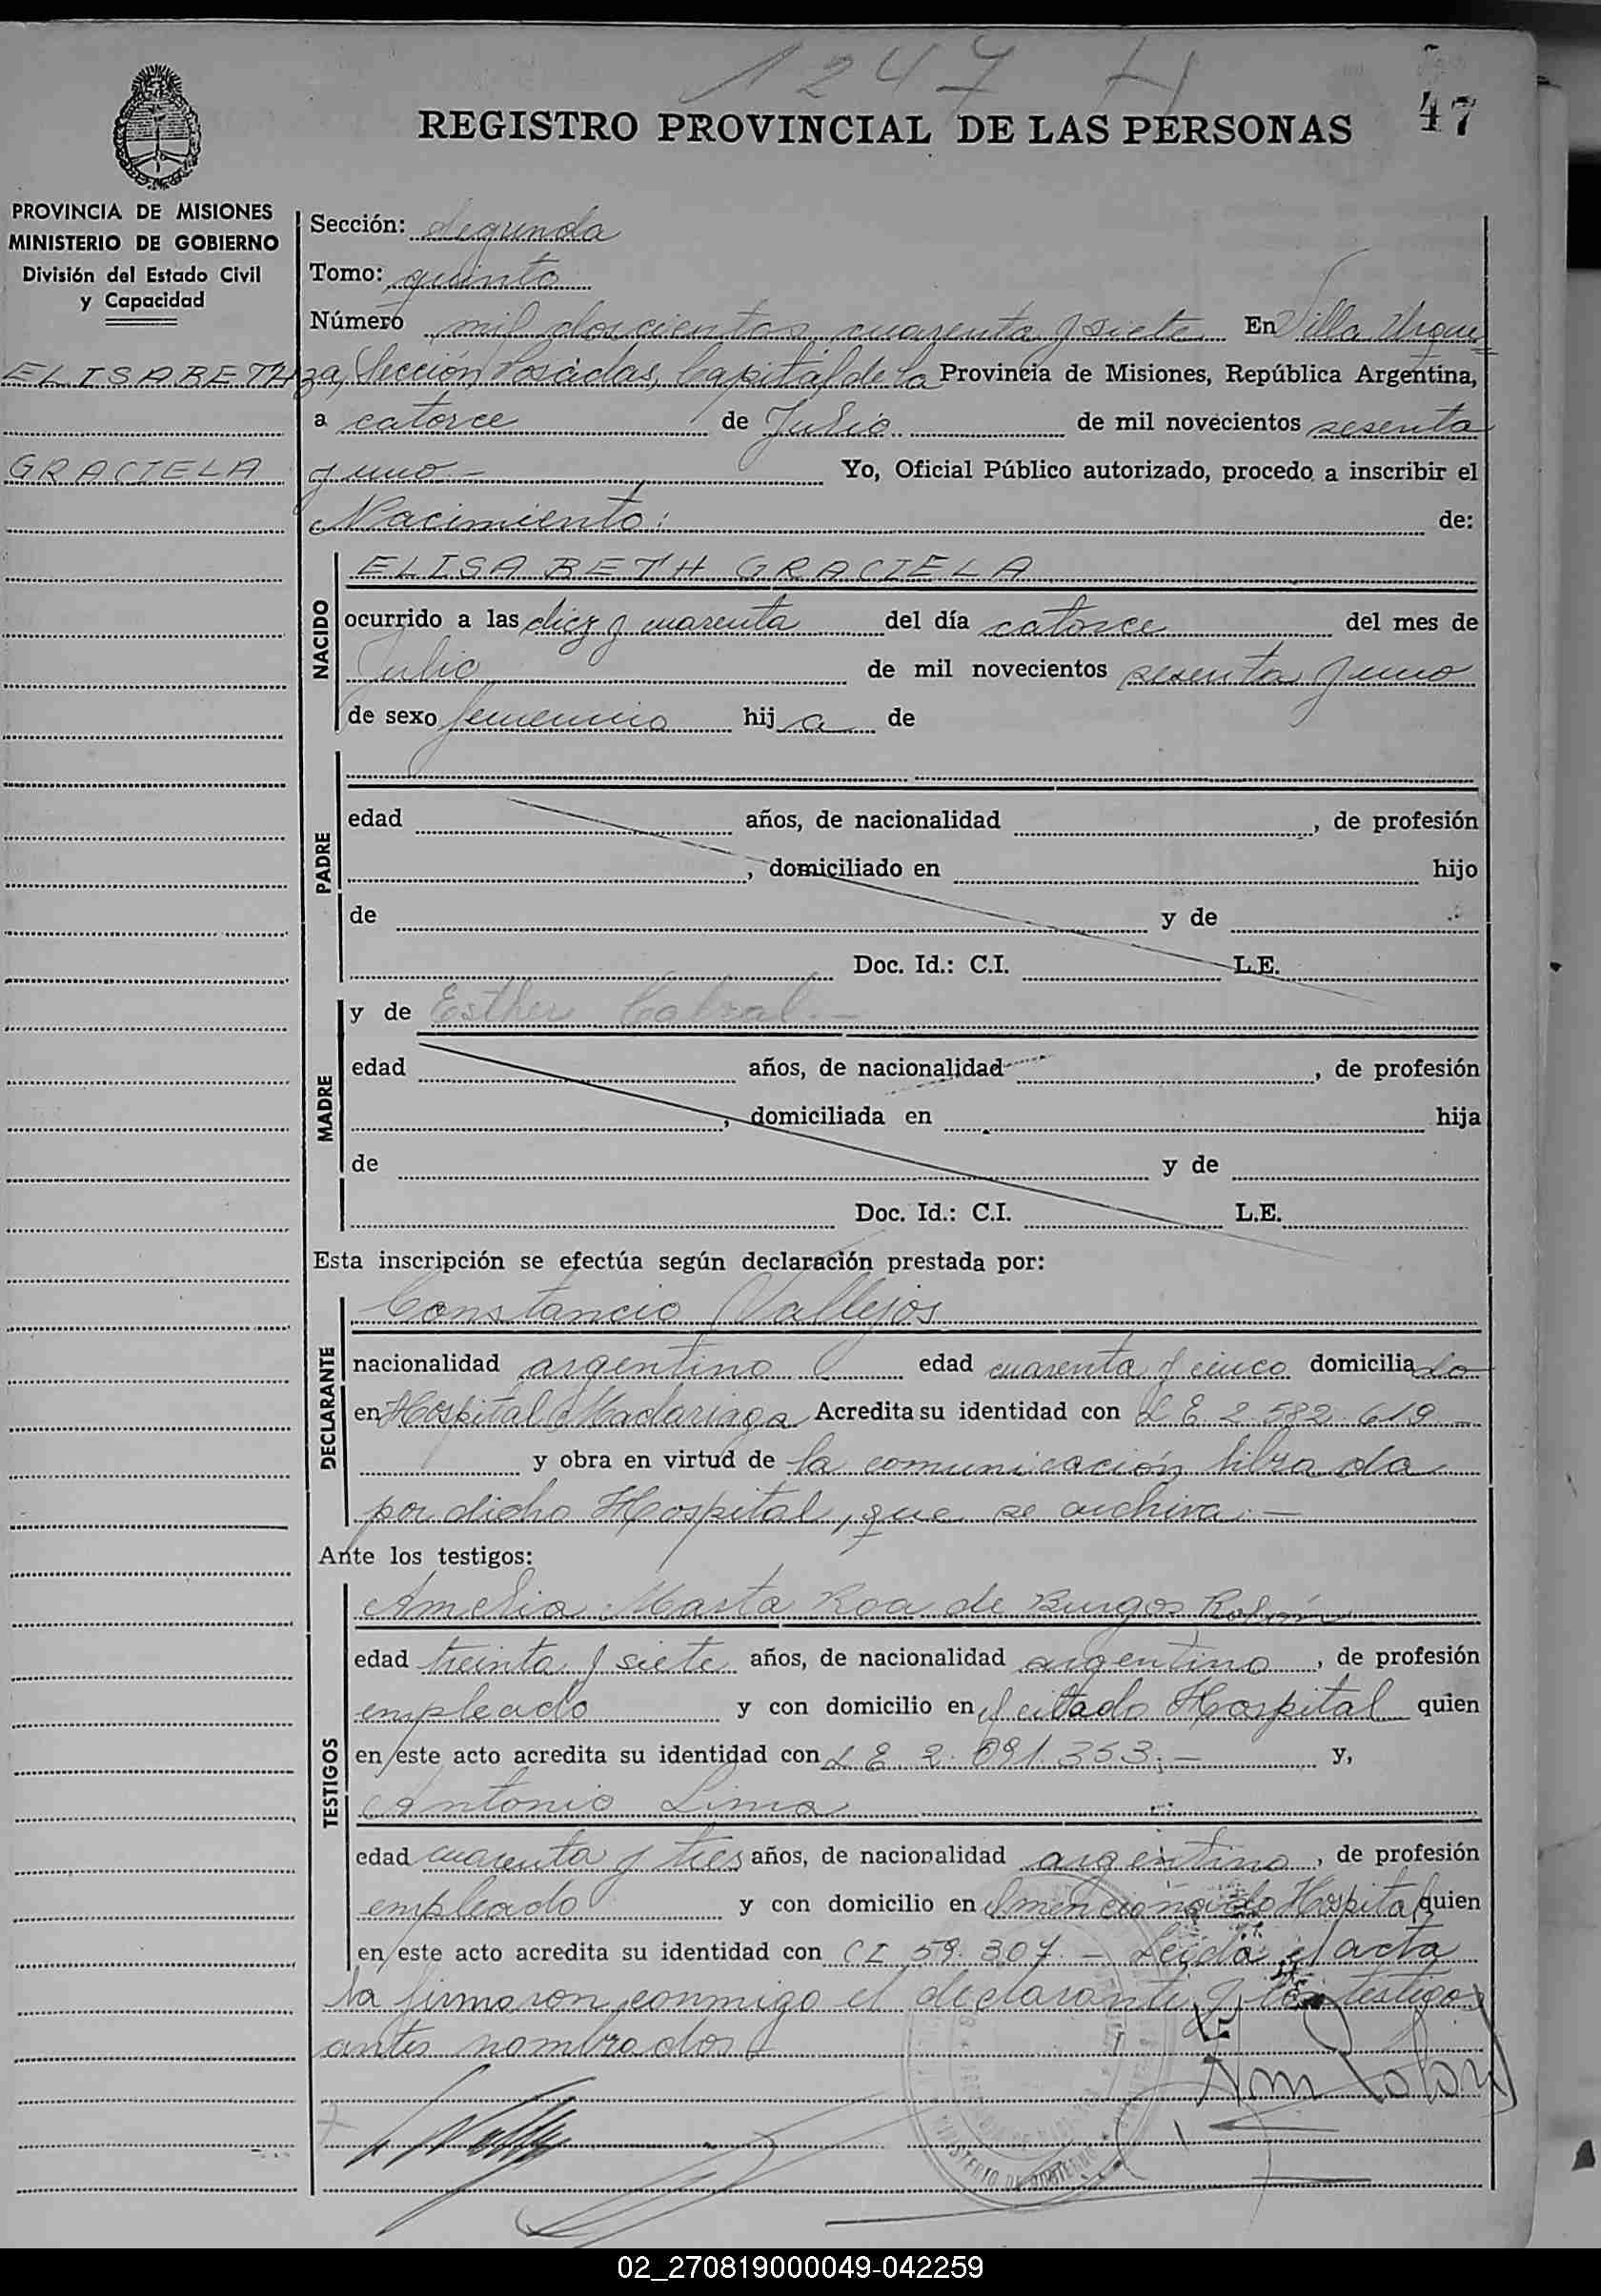 1247 H
REGISTRO PROVINCIAL DE LAS PERSONAS
47
PROVINCIA DE MISIONES
MINISTERIO DE GOBIERNO
División del Estado Civil
y Capacidad
ELISABETH
GRACIELA
Sección: Segunda
Tomo: quinto
Número mil doscientos cuarenta y siete En Villa Urqui
za, Sección Posadas, Capital de la Provincia de Misiones, República Argentina,
a catorce de Julio de mil novecientos sesenta
y uno - Yo, Oficial Público autorizado, procedo a inscribir el
Nacimiento: de:
NACIDO
ELISABETH GRACIELA
ocurrido a las diez y cuarenta del día catorce del mes de
Julio de mil novecientos sesenta y uno
de sexo femenino hij a de
PADRE
edad años, de nacionalidad , de profesión
, domiciliado en hijo
de y de
Doc. Id.: C.I. L.E.
MADRE
y de Esther Cabral. -
edad años, de nacionalidad , de profesión
, domiciliada en hija
de y de
Doc. Id.: C.I. L.E.
Esta inscripción se efectúa según declaración prestada por:
DECLARANTE
Constancio Vallejos
nacionalidad argentino edad cuarenta y cinco domicilia do
en Hospital Madariaga Acredita su identidad con L E 2.582.619 -
y obra en virtud de la comunicación librada
por dicho Hospital, que se archiva. -
Ante los testigos:
TESTIGOS
Amelio Marta Roa de Burgos Rolón
edad treinta y siete años, de nacionalidad argentino, de profesión
empleado y con domicilio en el citado Hospital quien
en este acto acredita su identidad con L E 2.091.353; - y,
Antonio Lima
edad cuarenta y tres años, de nacionalidad argentino, de profesión
empleado y con domicilio en el mencionado Hospital quien
en este acto acredita su identidad con CI 59.307. - Leída el acta
la firmaron conmigo el declarante y los testigos
antes nombrados
02_270819000049-042259